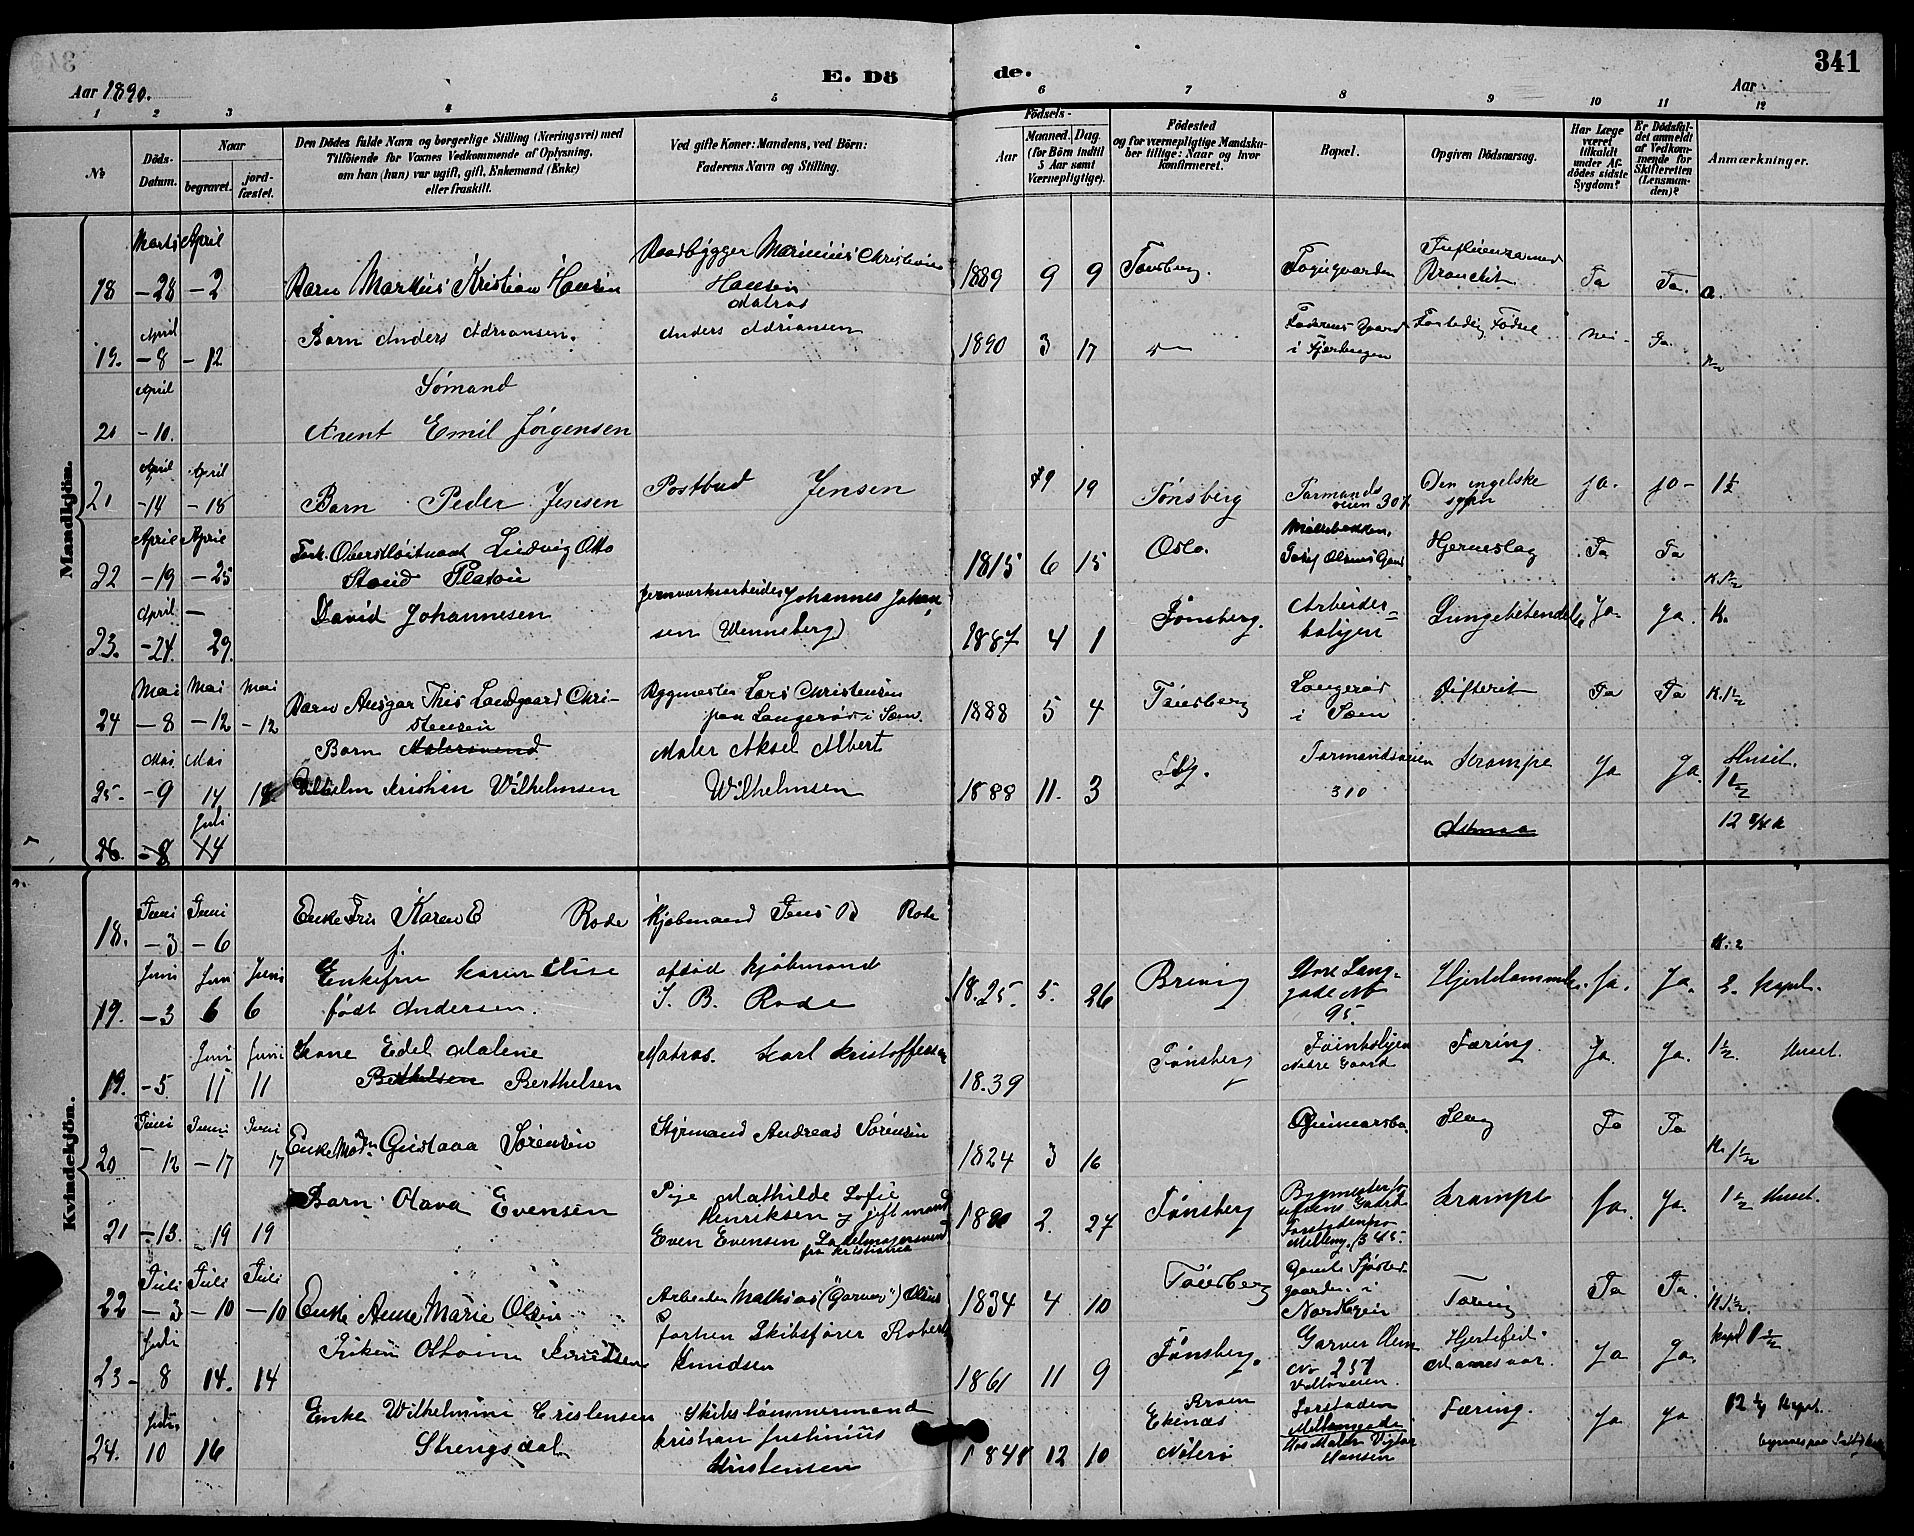 341
Aar 1890.
E. Dö
de.
Aar
1 2 3 4 5 6 7 8 9 10 11 12
No
Döds-Datum.
Naar
begravet.
jord-fæstet.
Den Dödes fulde Navn og borgerlige Stilling (Næringsvei) med
Tilföiende for Voxnes Vedkommende af Oplysning,
om han (hun) var ugift, gift, Enkemand (Enke)
eller fraskilt.
Ved gifte Koner: Mandens, ved Börn:
Faderens Navn og Stilling.
Födsels-
Aar
Maaned. Dag.
(for Börn indtil
5 Aar samt
Værnepligtige).
Födested
og for værnepligtige Mandska-
ber tillige: Naar og hvor
konfirmeret.
Bopæl.
Opgiven Dödsaarsag.
Har Læge
været
tilkaldt
under Af-
dödes sidste
Sygdom?
Er Dödsfal-
det anmeldt
af Vedkom-
mende for
Skifteretten
(Lensman-
den)?
Anmærkninger.
Mandkjön.
Marts April
18 -28 -2 Barn Markus Kristian Hansen
Baadbygger Marinius Christian
Hansen
1889 9 9 Tønsberg. Fogugaarden
Influenza med
Bronchit Ja Ja.
April
19. -8 -12 Barn Anders Adriansen.
Matros
Anders Adriansen
1890 3 17 Faderens Gaard
i Fjærbugen
Fortidlig Fødsel Nei- Ja.
April
20 -10. Sømand
Arent Emil Jørgensen
April April
21 -14 -18 Barn Peder Jensen Postbud Jensen
89 19 Tønsberg Tormods
veien 307
Den engelske
syge ja- ja- 1½
April April
22 -19 -25 Fork. Oberstløitnant Ludvig Otto
Stoud Platou
1815 6 15 Oslo. Møllebakken,
Hjerneslag Ja Ja K. 1½
April -
23. -24. 29. David Johannesen
Jernværksarbeider Johannes Johan
sen (Wenneberg)
1887 4 1 Tønsberg. Arbeider-
boligen
Lungebetendelse Ja. Ja. K.
Mai Mai Mai
24 -8 -12 -12 Barn Ansgar This Landgaard Chri-
stensen
Bygmester Lars Christensen
paa Langerød i Sæm
1888 5 4 Tønsberg Langerød
i Sæm
Difterit Ja Ja K. 1½
Mai Mai
25- -9 14 Barn
Vilhelm Kristian Wilhelmsen
Maler Aksel Albert
Wilhelmsen
1888 11. 3 Tbg. Tormandsveien
310
Krampe Ja Ja. Huset.
1½
Juli
26. -8 14 Astma
Kvindekjön.
Juni Juni
18. -3 -6 Enke Fru Karen E Rode
Kjøbmand Jens B Rode
K. 2
Juni Juni Juni
19. -3 6 6 Enkefru Karen Elise
født Andersen.
afdød Kjøbmand
J. B. Rode
1825. 5. 26 Brevig Store Lang-
gade No
95.
Hjertelammelse. Ja. Ja. 2. Kapel.
Juni Juni
19. -5 11 11 Kone Edel Malene
Berthelsen Berthelsen
Matros. Karl Kristoffersen
1839 Tønsberg
Nedre Gaard
Tæring. Ja. Ja. 1½ Huset.
Juni Juni Juni
20 -12 -17 17 Enke Mad. Gustava Sørensen
Styrmand Andreas Sørensen
1824 3 16 Gunnarsbo. Slag Ja Ja K. 1½
21 -13. -19 19 Barn Olava Evensen
Pige Mathilde Sofie
Henriksen og gift mand
Even Evensen Sadelmagersvend
fra Kristiania
1890 2. 27 Tønsberg
Krampe Ja. Ja. 1½ Huset.
Juli Juli Juli
22 -3 -10 -10 Enke Anne Marie Olsen
Arbeider Mathias ("Garver") Olsen
1834 4 10 Tønsberg Gamle
gaarden i
Nordbyen
Tæring Ja Ja. K. 1½.
Juli
23- 8 14. 14 Frøken Othine Knudsen
Forhen Skibsfører Robert
Knudsen
1861 11 9 Tønsberg. Garver Olsen
No 257
Hjertefeil.
Mavesaar. Ja Ja. Kapel 1½
Juli
24. 10 16 Enke Wilhelmine Cristensen
Strengsdal
Skibstømmermand
Kristian Justinius
Kristensen
1848 12 10 Ekenæs
Nøterø
Forstaden
Møllegade
Hos Maler Vigter
Hansen
Tæring. Ja Ja 12 Kapel.